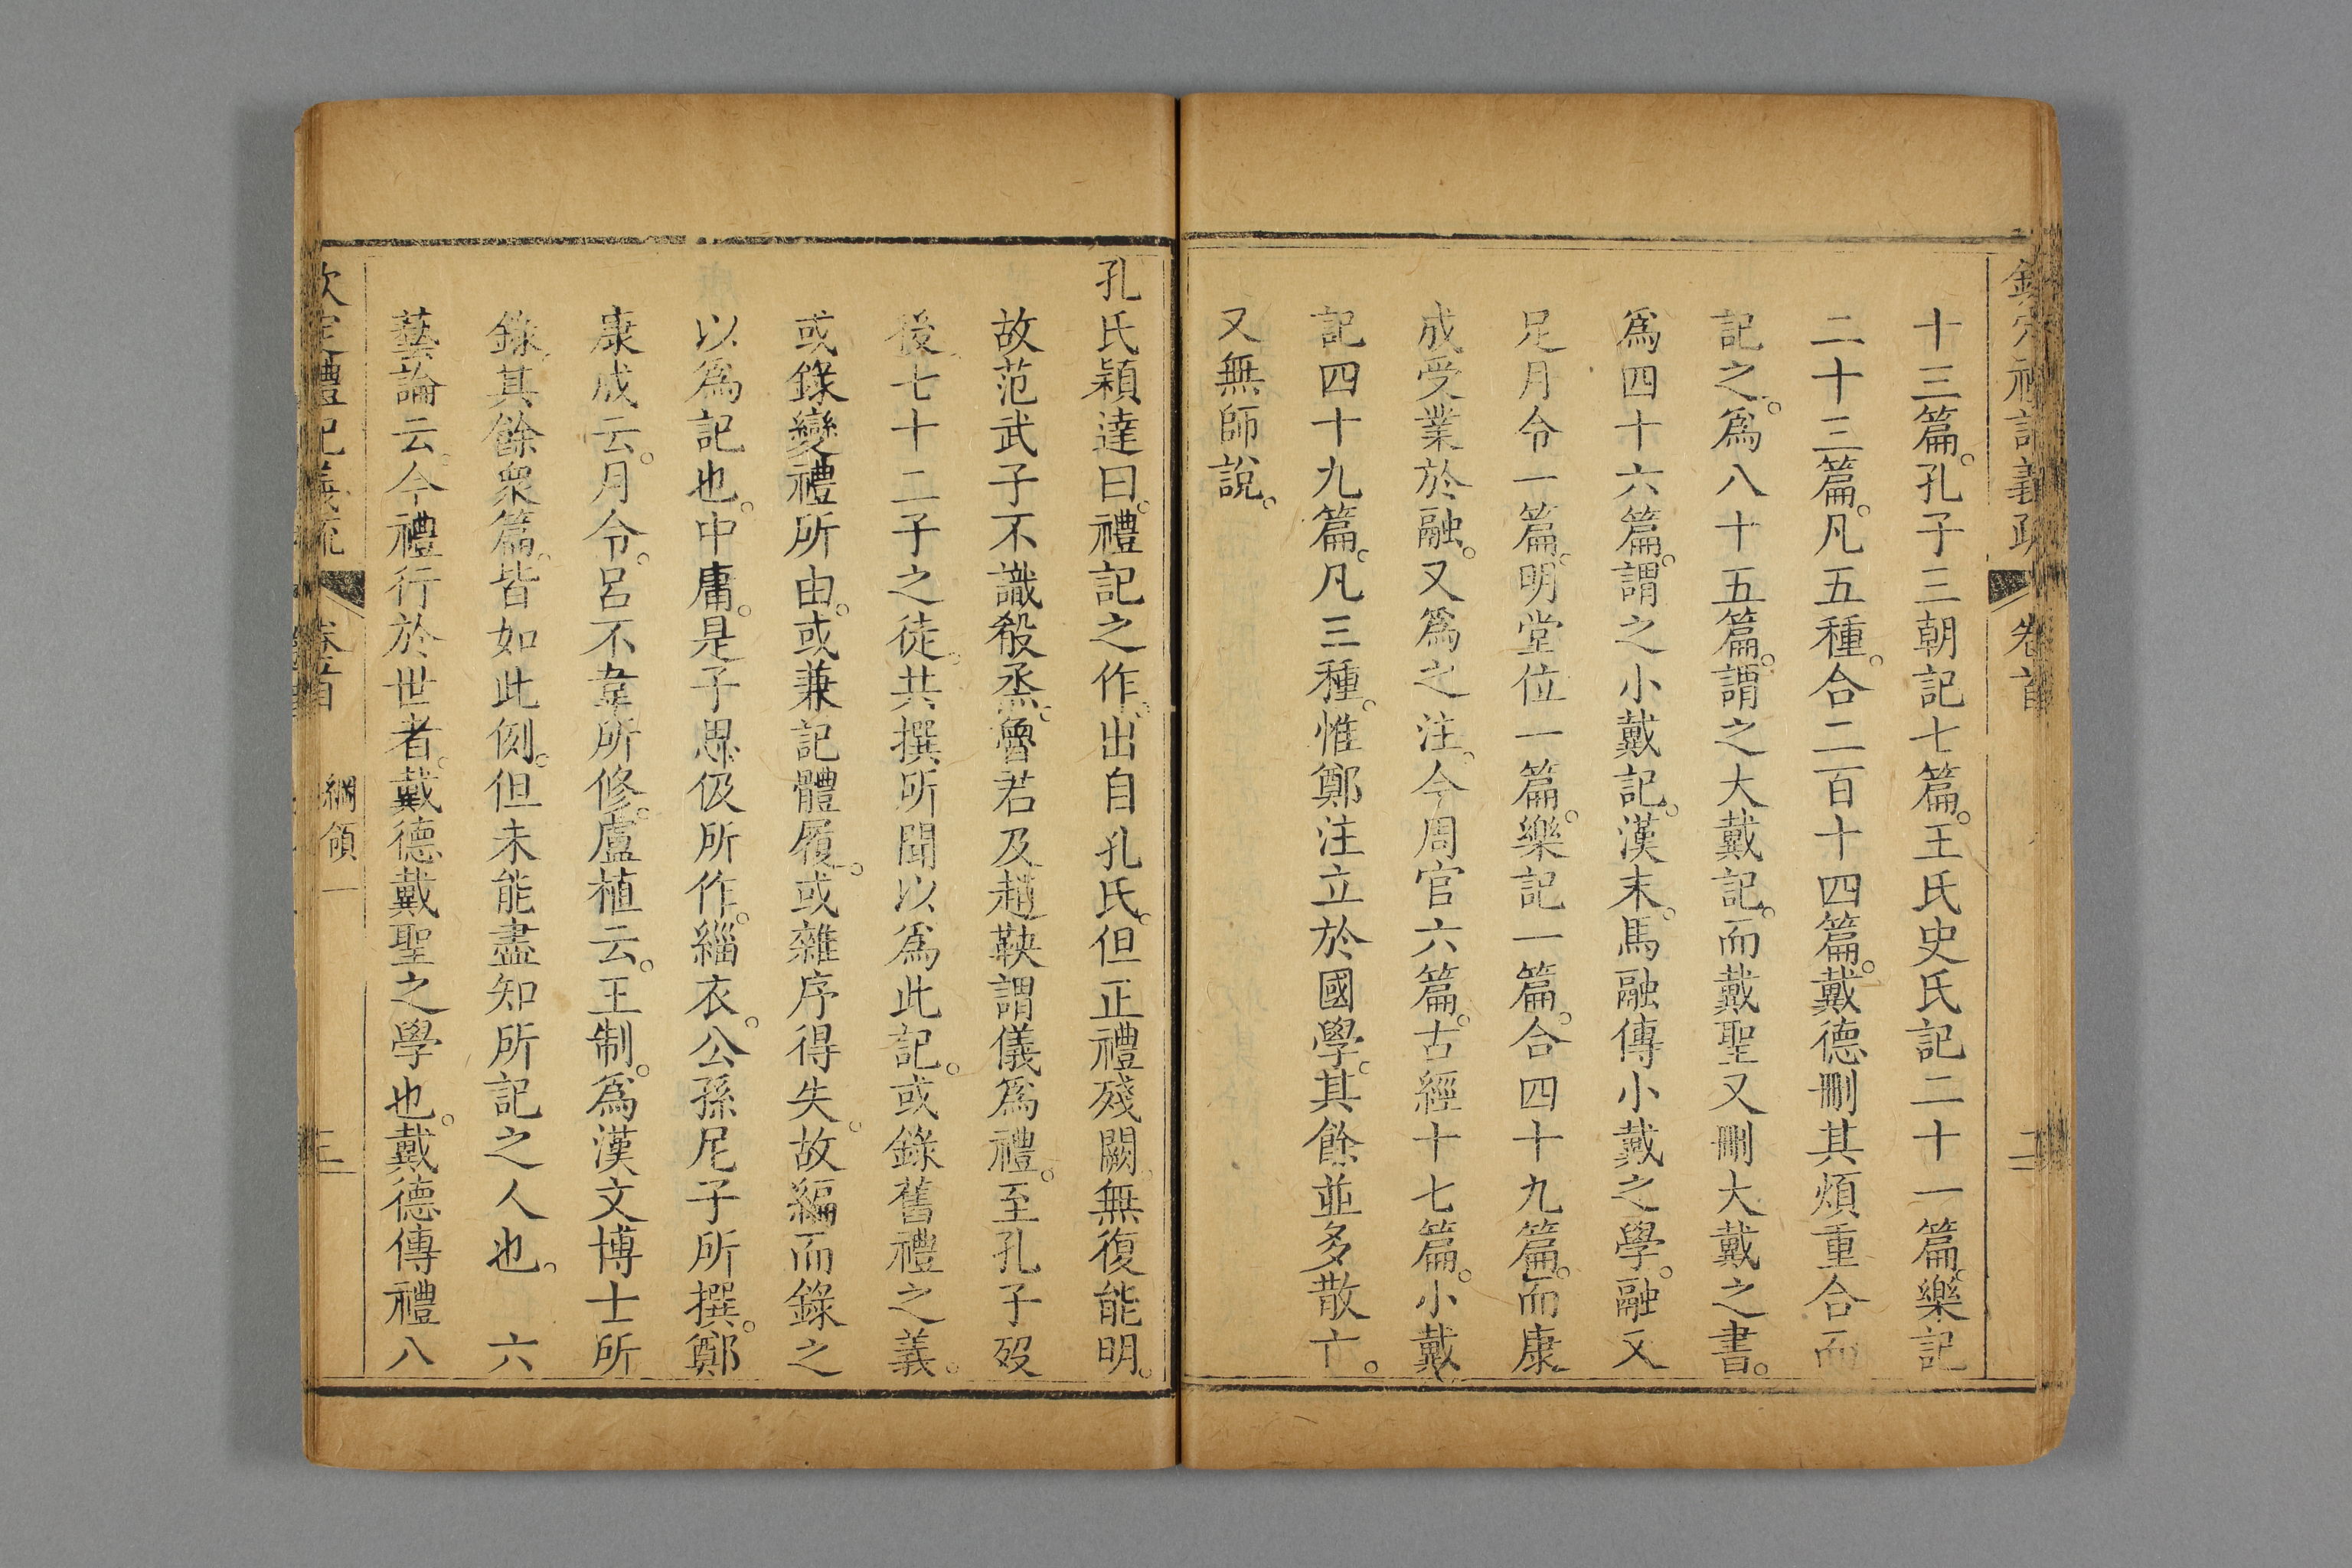 欽定禮記義疏 卷首 二
十三篇。孔子三朝記七篇。王氏史氏記二十一篇。樂記
二十三篇。凡五種。合二百十四篇。戴德刪其煩重合而
記之。爲八十五篇。謂之大戴記。而戴聖又刪大戴之書。
爲四十六篇。謂之小戴記。漢末。馬融傳小戴之學。融又
足月令一篇。明堂位一篇。樂記一篇。合四十九篇。而康
成受業於融。又爲之注。今周官六篇。古經十七篇。小戴
記四十九篇。凡三種。惟鄭注立於國學。其餘並多散亡。
又無師說。
孔氏穎達曰。禮記之作。出自孔氏。但正禮殘闕。無復能明。
故范武子不識殽烝。魯君及趙鞅謂儀爲禮。至孔子歿
後。七十二子之徒。共撰所聞以爲此記。或錄舊禮之義。
或錄變禮所由。或兼記體履。或雜序得失。故編而錄之
以爲記也。中庸。是子思伋所作。緇衣。公孫尼子所撰。鄭
康成云。月令。呂不韋所修。盧植云。王制。爲漢文博士所
錄。其餘衆篇。皆如此例。但未能盡知所記之人也。六
藝論云。今禮行於世者。戴德戴聖之學也。戴德傳禮八
欽定禮記義疏 卷首 綱領一 三